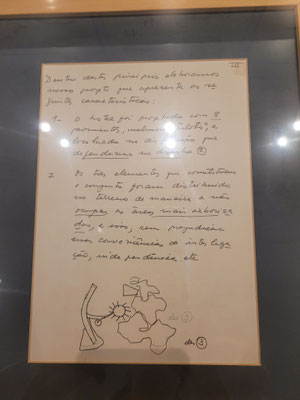 III
Dentro destes principios elaboramos
nosso projeto que apresenta as se-
guintes caracteristicas:
1- O hotel foi projetado com 8
pavimentos, realmente
localizado na que
defendemos no 2
2. Os tres elementos que constituem
o conjunto foram distribuidos
no terreno de maneira a não
ocupar as áreas mais arboriza
das, e isso, sem prejudicar
suas conveniências de inter liga
ção, independencia etc
des 3
des 3